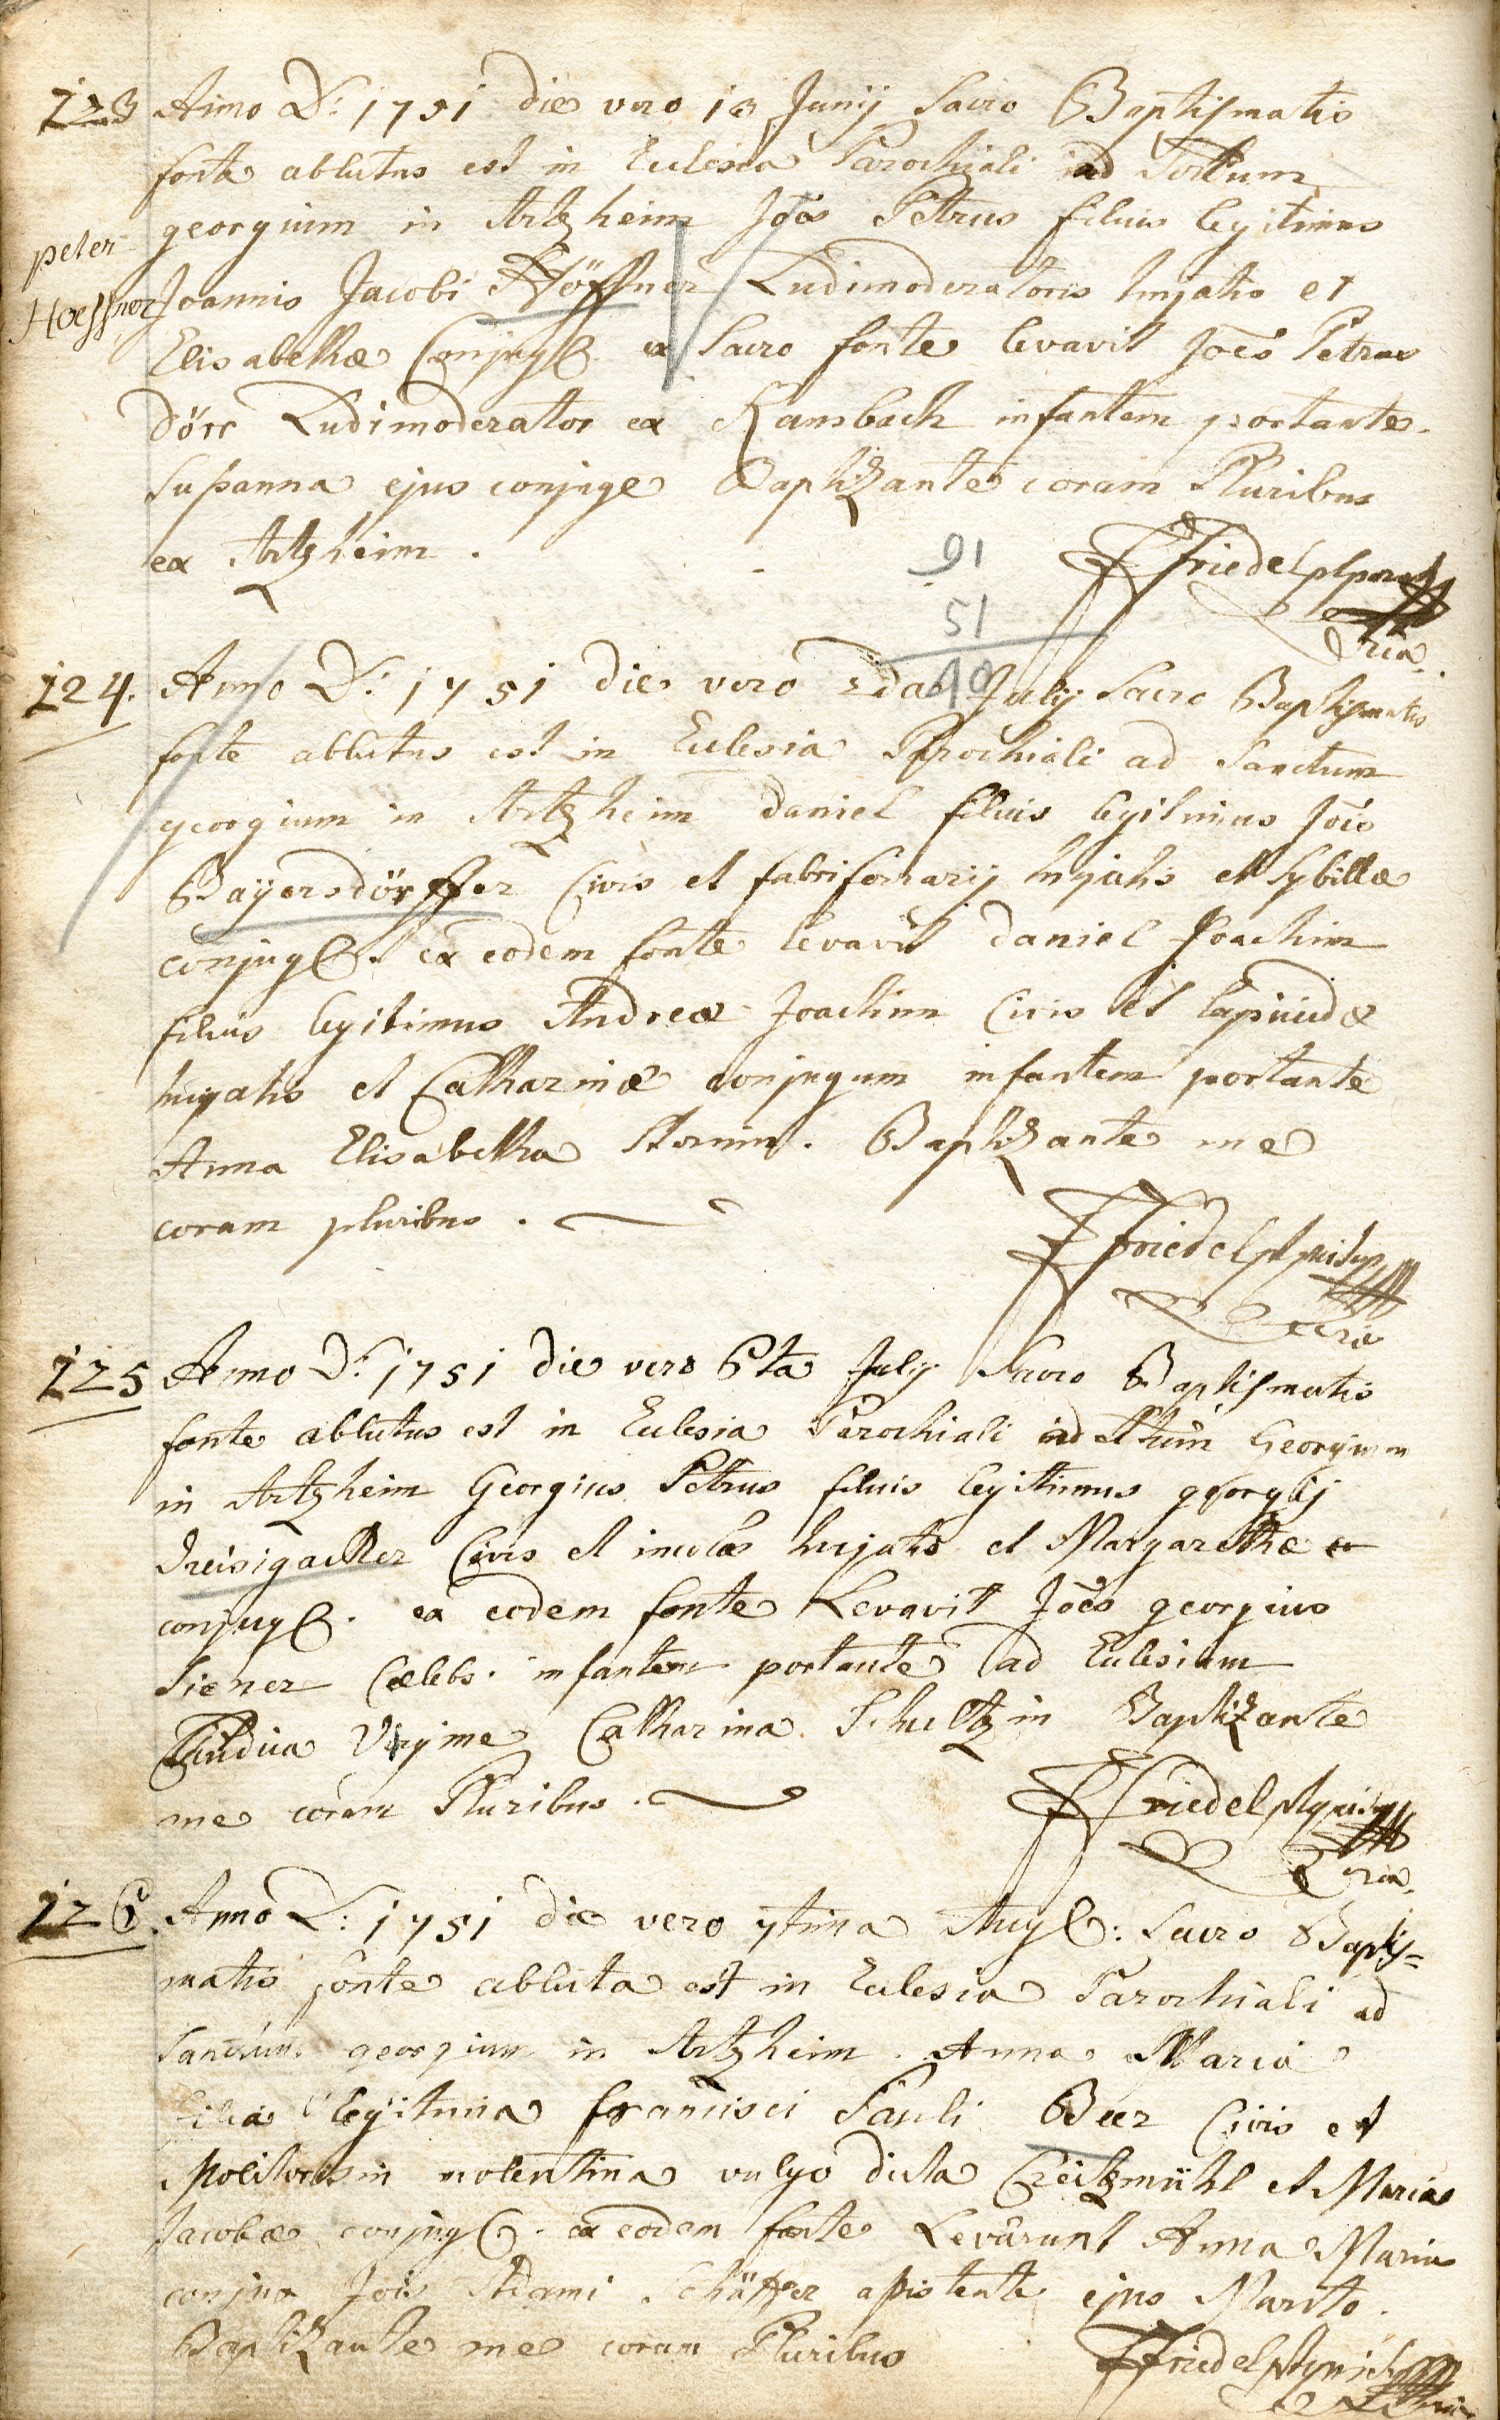 123 Anno D: 1751 die vero 13 Junij Sacro Baptismatis
fonte ablutus est in Eclesia Parochiali ad Sctum
georgium in Artzheim Joes Petrus filius legitimus
peter
Hoeffner
Joannis Jacobi Höffner Ludimoderatoris hujatis et
Elisabethæ Conjug. ex Sacro fonte levavit Joes Petrus
Dörr Ludimoderator ex Ransbach infantem portante
Susanna ejus conjuge Baptizante coram Pluribus
ex Artzheim.
91
51
40
Friedel
124. Anno D: 1751 die vero 2da July Sacro Baptismatis
fonte ablutus est in Eclesia Parochiali ad Sanctum
georgium in Artzheim Daniel filius legitimus Jois
Bayersdörffer Civis et fabri ferrarij hujatis et Sybillæ
conjug. ex eodem fonte levavit Daniel Joachim
filius legitimus Andreæ Joachim Civis et lapicidæ
hujatis et Catharinæ conjugum infantem portante
Anna Elisabetha Baptizante me
coram pluribus.
Friedel
125 Anno D: 1751 die vero 6ta July Sacro Baptismatis
fonte ablutus est in Eclesia Parochiali ad Georgium
in Artzheim Georgius Petrus filius legitimus georgij
Dreisigacker Civis et incolæ hujatis et Margarethæ
conjug. ex eodem fonte Levavit Joes georgius
Siener Cælebs. infantem portante ad Eclesiam
Pudica Virgine Catharina Schultzin Baptizante
me coram Pluribus.
Friedel
126. Anno D: 1751 die vero 7tima Aug: Sacro Baptis=
matis fonte abluta est in Eclesia Parochiali ad
Sanctum georgium in Artzheim. Anna Maria
filia legitima francisci Pauli Beer Civis et
Molitoris in molentina vulgo dicta Creitzmühl et Mariæ
Jacobæ conjug. ex eodem fonte Levarunt Anna Maria
conjux Jois Adami Schäffer assistente ejus Marito.
Baptizante me coram Pluribus
Friedel